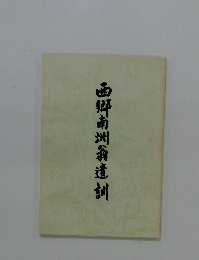 西郷南洲翁遺訓